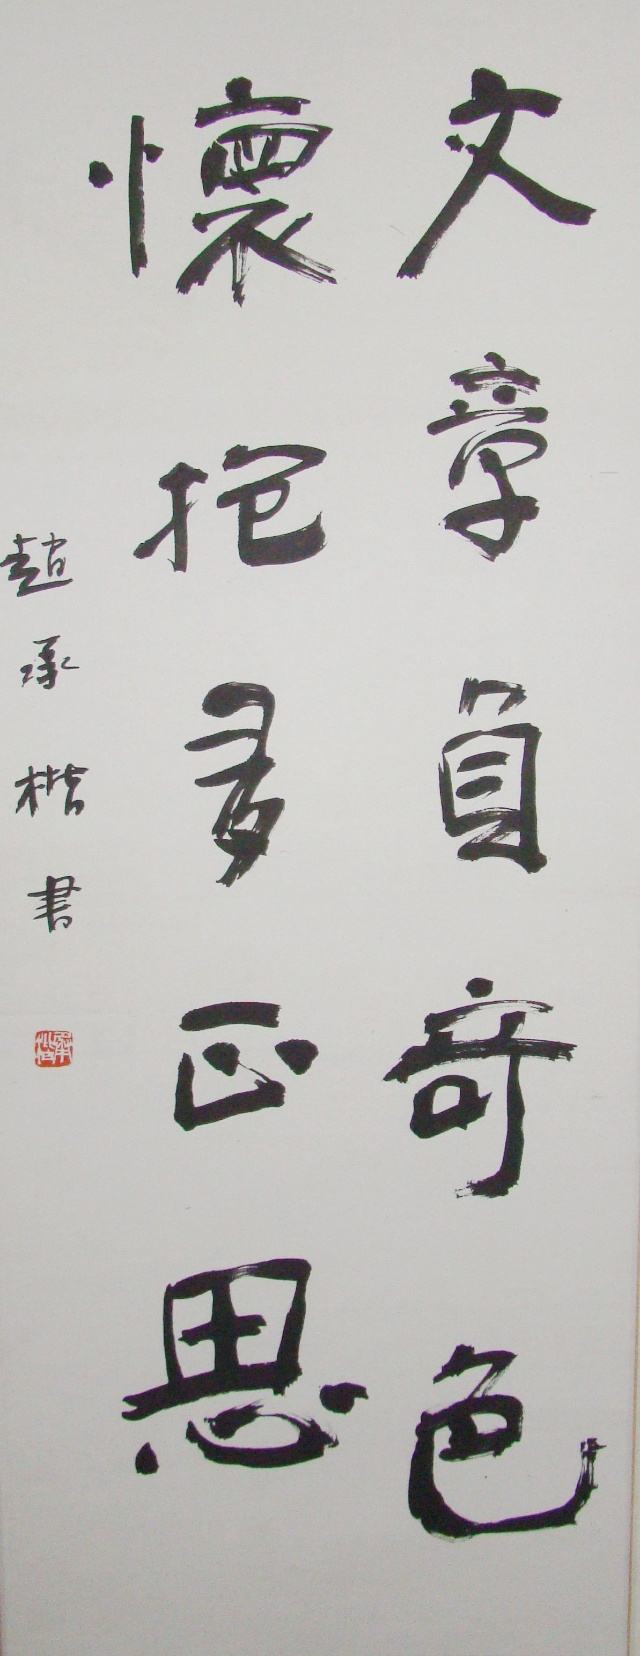 文章負奇色
懷抱多正思
趙承楷書